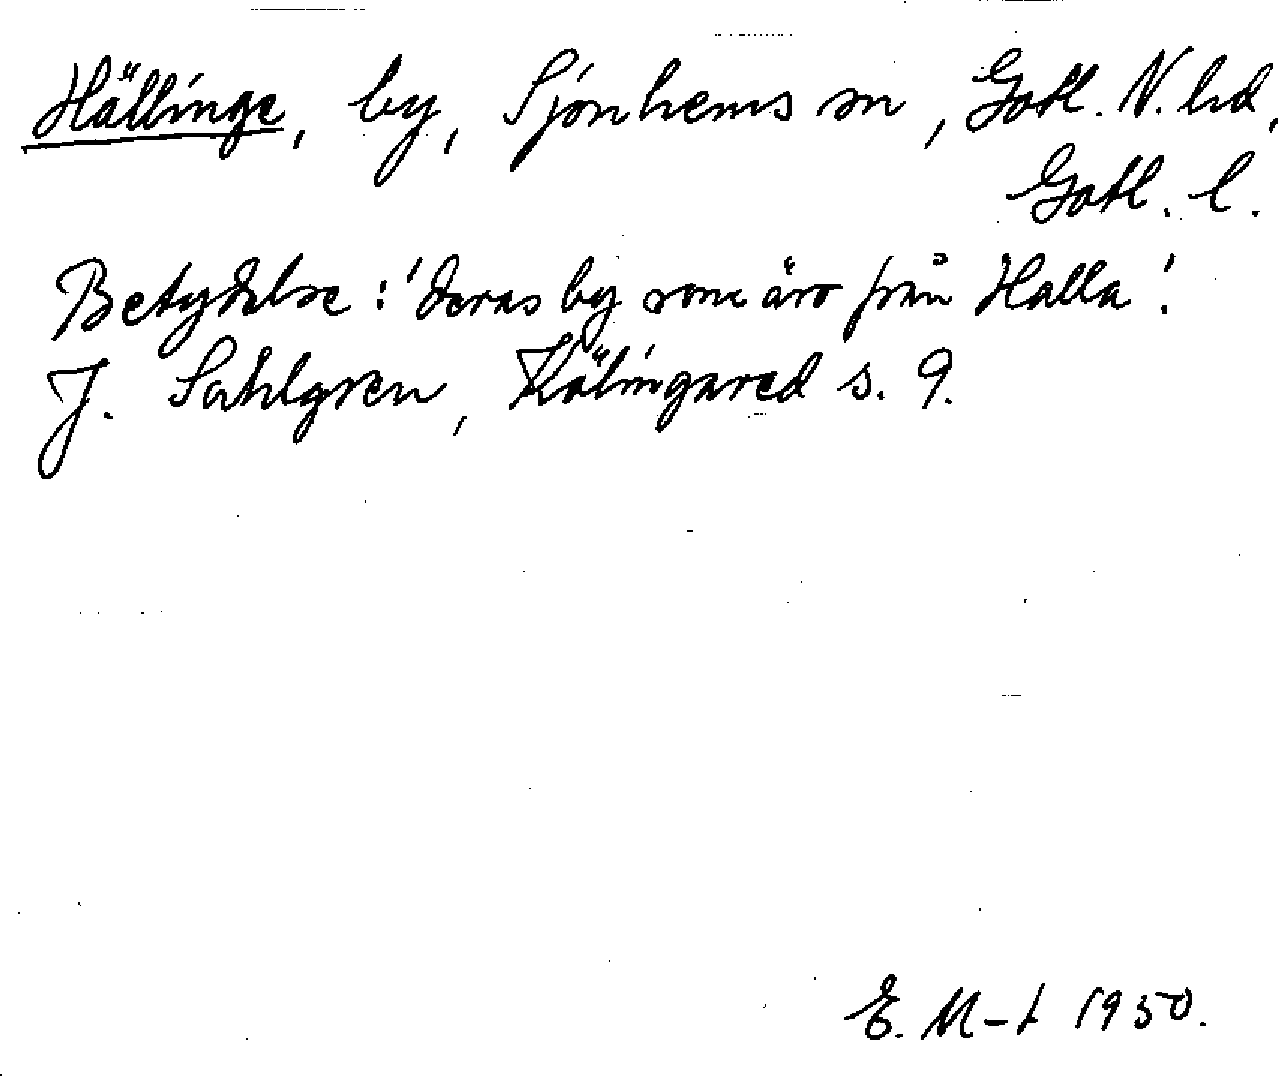 Hällinge, by, Sjonhems sn, Gotl. N. hd,
Gotl. l.
Betydelse: 'deras by som äro från Halla'.
J. Sahlgren, Kölingared s. 9.
E. M-t 1950.